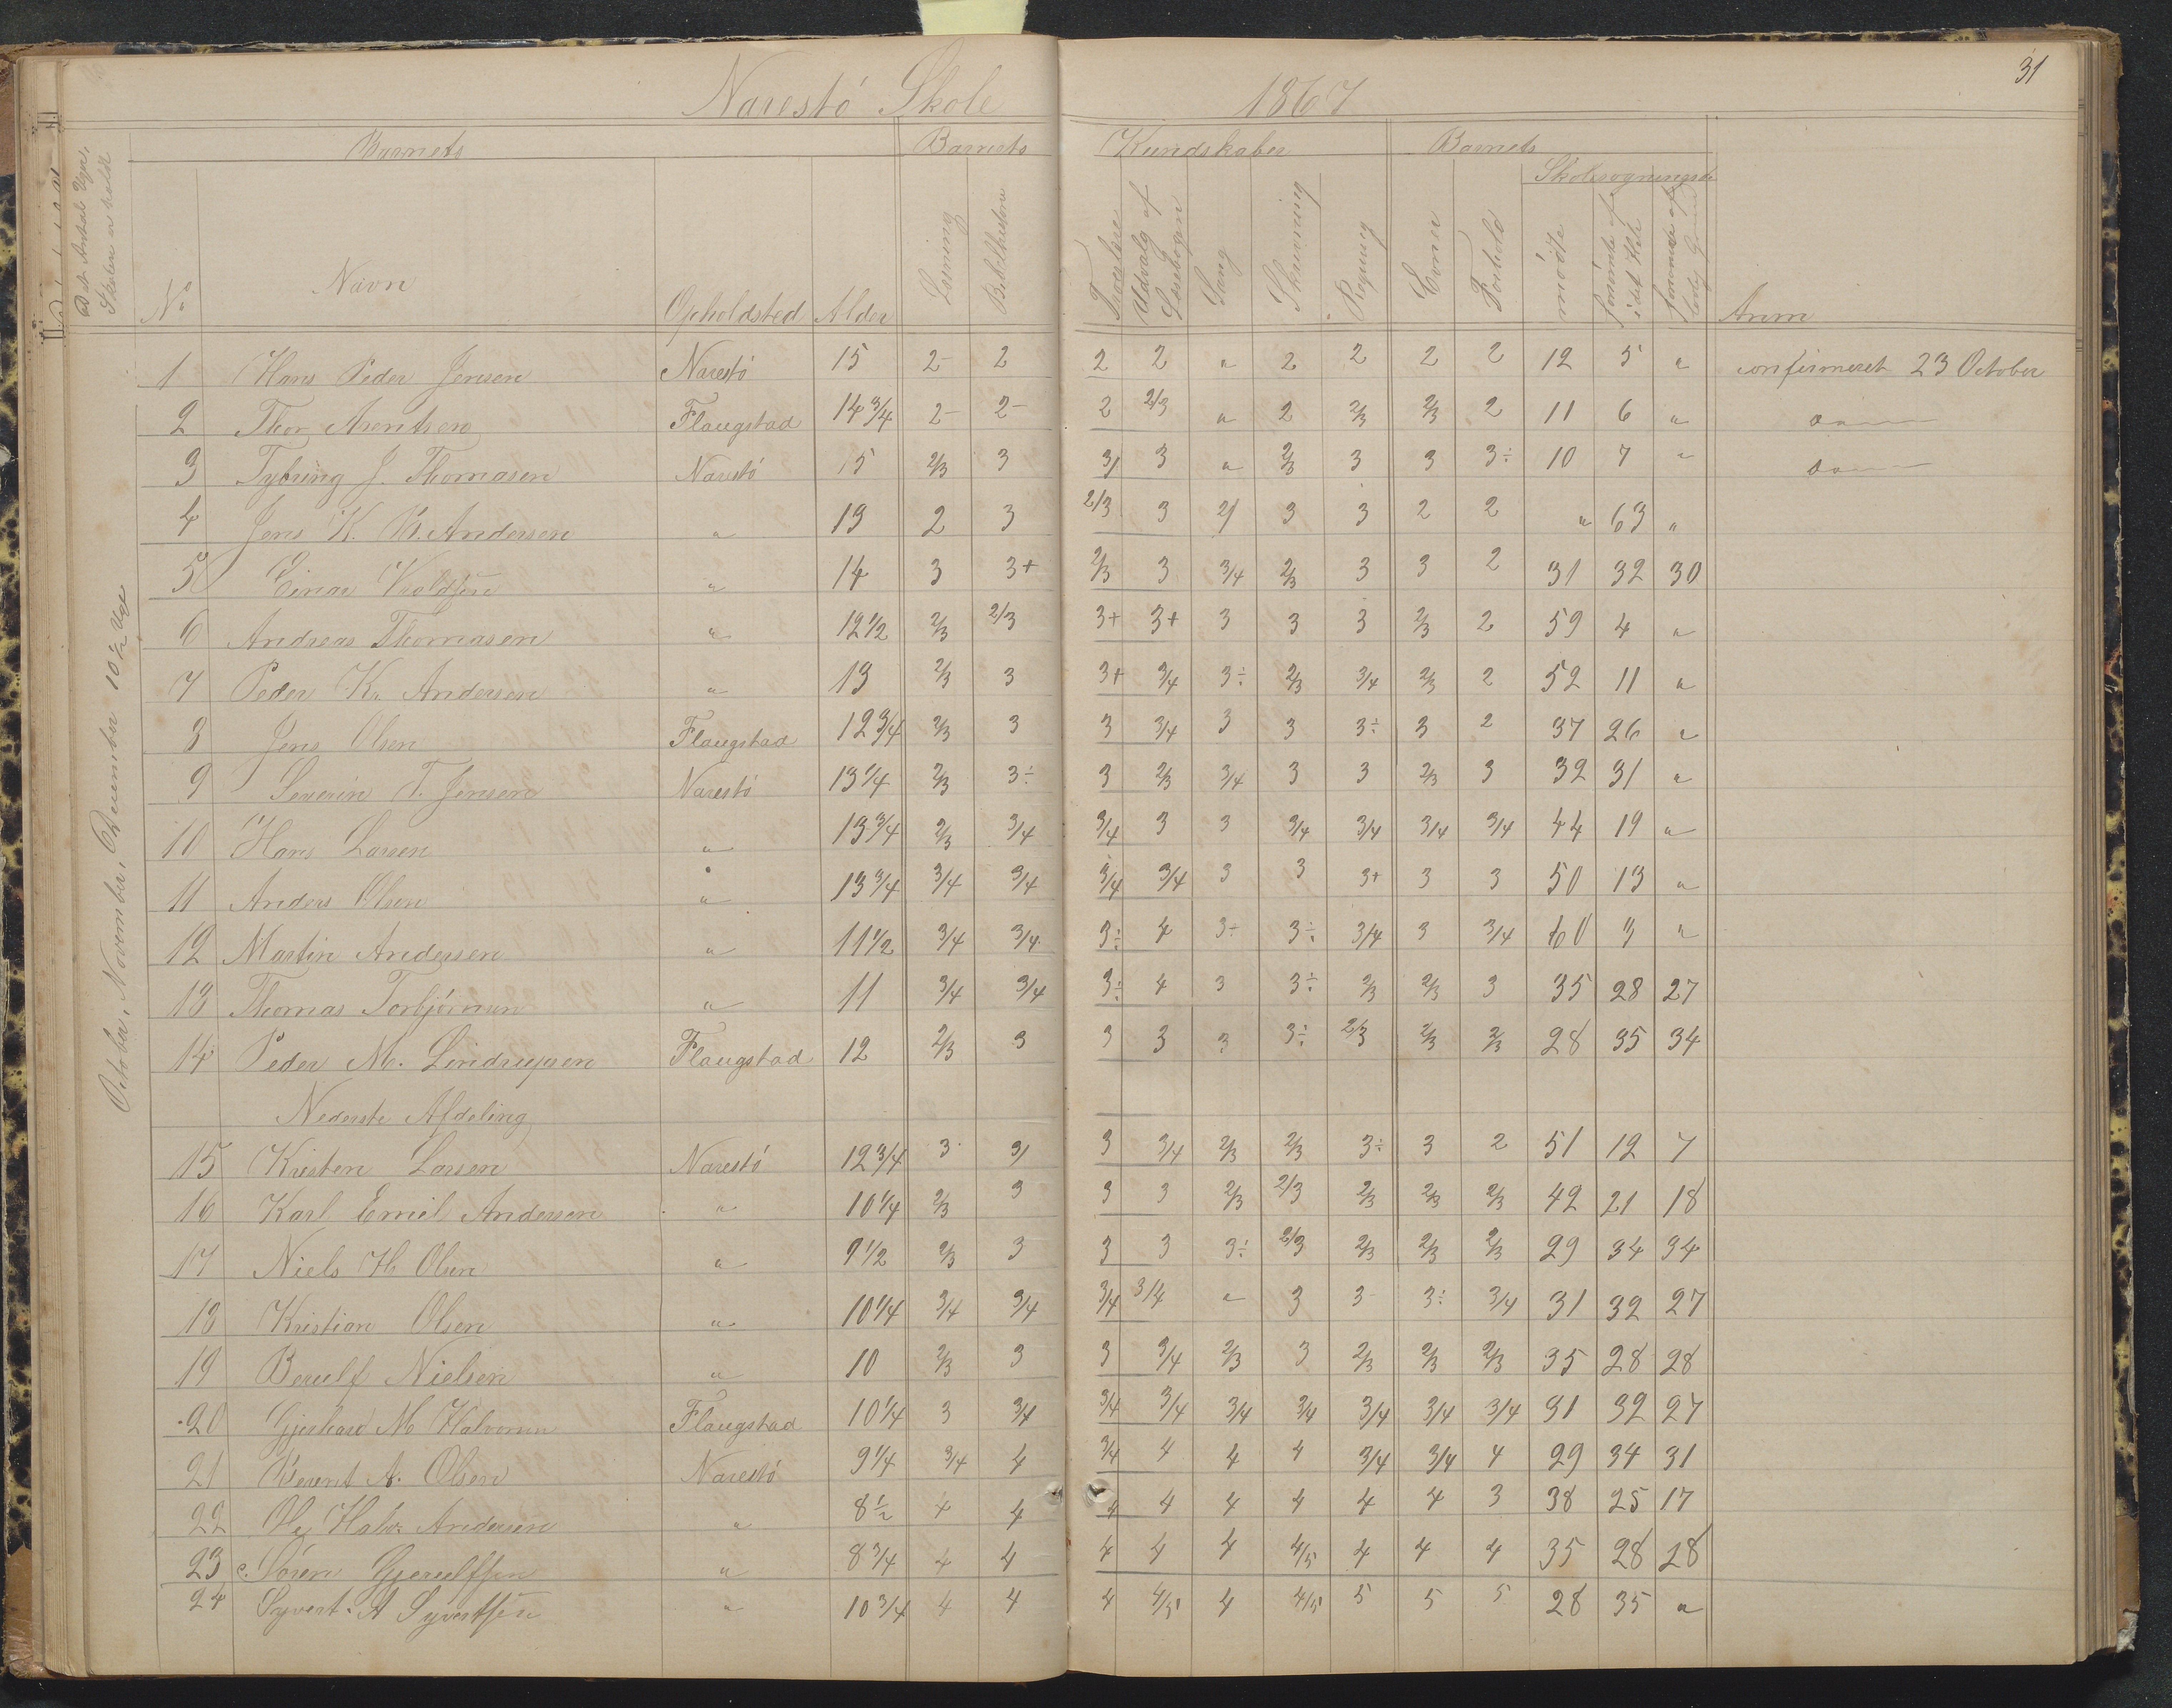 31
Narestö Skole 1867
Barnets Barnets Kundskaber Barnets
Skolesøgningsda
Det Antal Uger, Skolen er holdt
No Navn Opholdsted Alder Læsning Bibelhistorie Troeslære Udvalg af Læsebogen Sang Skrivning Regning Evner Forhold mödte forsömte i det Hele forsömte af lovlig Grund Anm
October, November, December 10 1/2 Uge
1 Hans Peder Jensen Narestö 15 2- 2 2 2 " 2 2 2 2 12 5 " confirmeret 23 October
2 Thor Arentsen Flaugstad 14 3/4 2- 2- 2 2/3 " 2 2/3 2/3 2 11 6 "
3 Tybring J. Thomasen Narestö 15 2/3 3 3/ 3 " 2/3 3 3 3÷ 10 7 "
4 Jens K. B. Andersen " 13 2 3 2/3 3 2/ 3 3 2 2 " 63 "
5 Einar " 14 3 3+ 2/3 3 3/4 2/3 3 3 2 31 32 30
6 Andreas Thomasen " 12 1/2 2/3 2/3 3+ 3+ 3 3 3 2/3 2 59 4 "
7 Peder Kr. Andersen " 13 2/3 3 3+ 3/4 3÷ 2/3 3/4 2/3 2 52 11 "
8 Jens Olsen Flaugstad 12 3/4 2/3 3 3 3/4 3 3 3÷ 3 2 37 26 "
9 Severin T. Jensen Narestö 13 1/4 2/3 3÷ 3 2/3 3/4 3 3 2/3 3 32 31 "
10 Hans Larsen " 13 3/4 2/3 3/4 3/4 3 3 3/4 3/4 3/4 3/4 44 19 "
11 Anders Olsen " 13 3/4 3/4 3/4 3/4 3/4 3 3 3+ 3 3 50 13 "
12 Martin Andersen " 11 1/2 3/4 3/4 3÷ 4 3÷ 3÷ 3/4 3 3/4 60 3 "
13 Thomas Torbjörnsen " 11 3/4 3/4 3÷ 4 3 3÷ 2/3 2/3 3 35 28 27
14 Peder M. Lindrupsen Flaugstad 12 2/3 3 3 3 3 3÷ 2/3 2/3 2/3 28 35 34
Nederste Afdeling
15 Kristen Larsen Narestö 12 3/4 3 3/ 3 3/4 2/3 2/3 3÷ 3 2 51 12 7
16 Karl Emil Andersen " 10 1/4 2/3 3 3 3 2/3 2/3 2/3 2/3 2/3 42 21 18
17 Niels H. Olsen " 9 1/2 2/3 3 3 3 3÷ 2/3 2/3 2/3 2/3 29 34 34
18 Kristian Olsen " 10 1/4 3/4 3/4 3/4 3/4 " 3 3 3÷ 3/4 31 32 27
19 Bereulf Nielsen " 10 2/3 3 3 3/4 2/3 3 2/3 2/3 2/3 35 28 28
20 Gjerhard M Halvorsen Flaugstad 10 1/4 3 3/4 3/4 3/4 3/4 3/4 3/4 3/4 3/4 31 32 27
21 Berent A. Olsen Narestö 9 1/4 3/4 4 3/4 4 4 4 3/4 3/4 4 29 34 31
22 Ole Halv. Andersen " 8 1/2 4 4 4 4 4 4 4 4 3 38 25 17
23 Sören Gjereulfsen " 8 3/4 4 4 4 4 4 4/5 4 4 4 35 28 28
24 Syvert A Syvertsen " 10 3/4 4 4 4 4/5 4 4/5 5 5 5 28 35 "